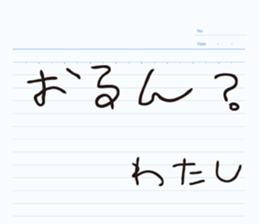 No.
Date　・　・
おるん？
わたし